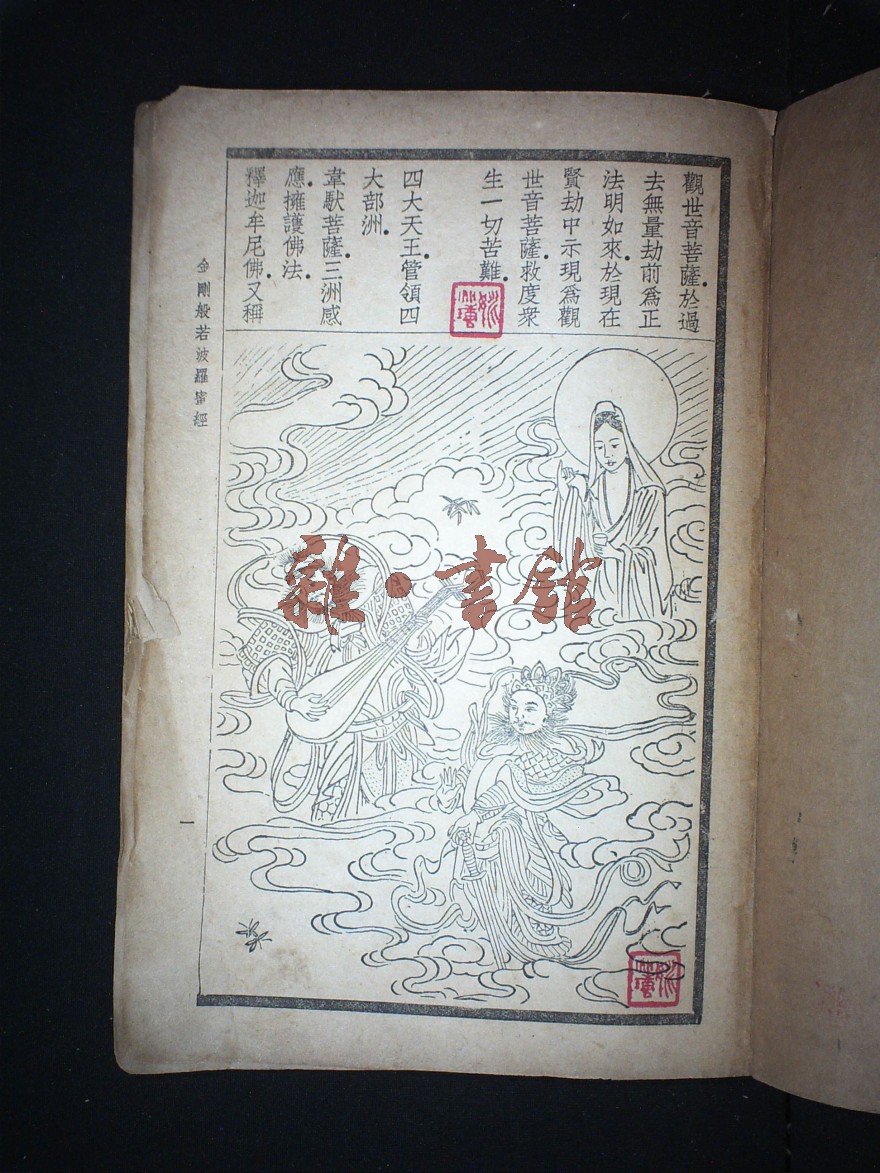 觀世音菩薩於過
去無量劫前爲正
法明如來於現在
賢劫中示現爲觀
世音菩薩救度衆
生一切苦難
四大天王管領四
大部洲
韋馱菩薩三洲感
應擁護佛法
釋迦牟尼佛又稱
金剛般若波羅蜜經
一
雜·書館